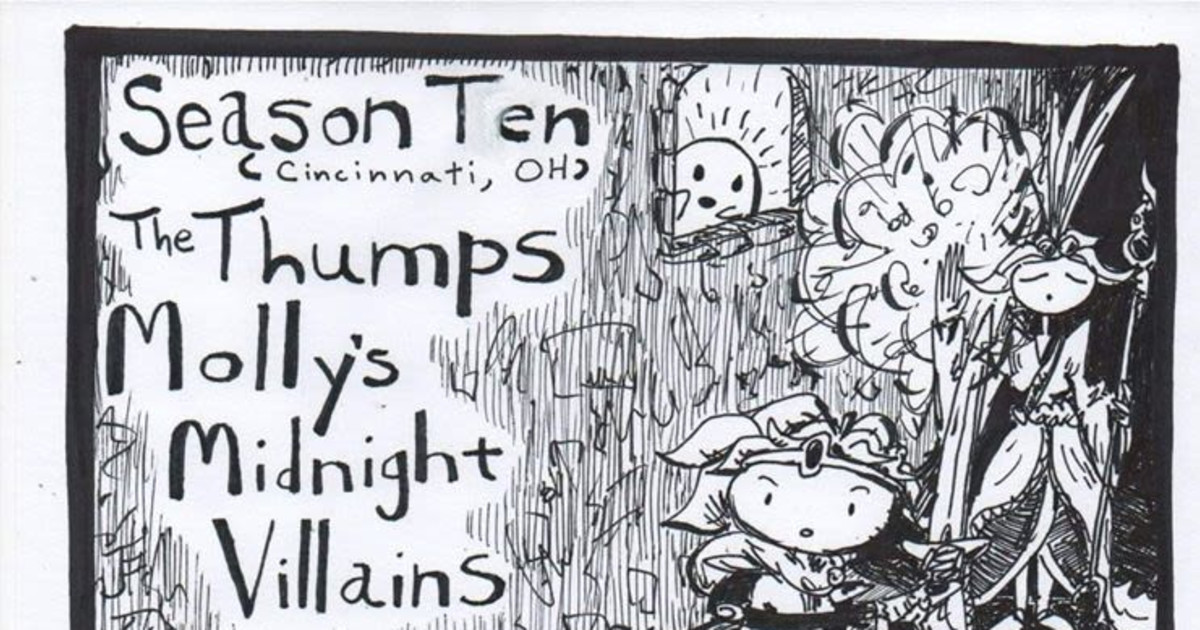 Season Ten
(Cincinnati, OH)
The Thumps
Molly's
Midnight
Villains